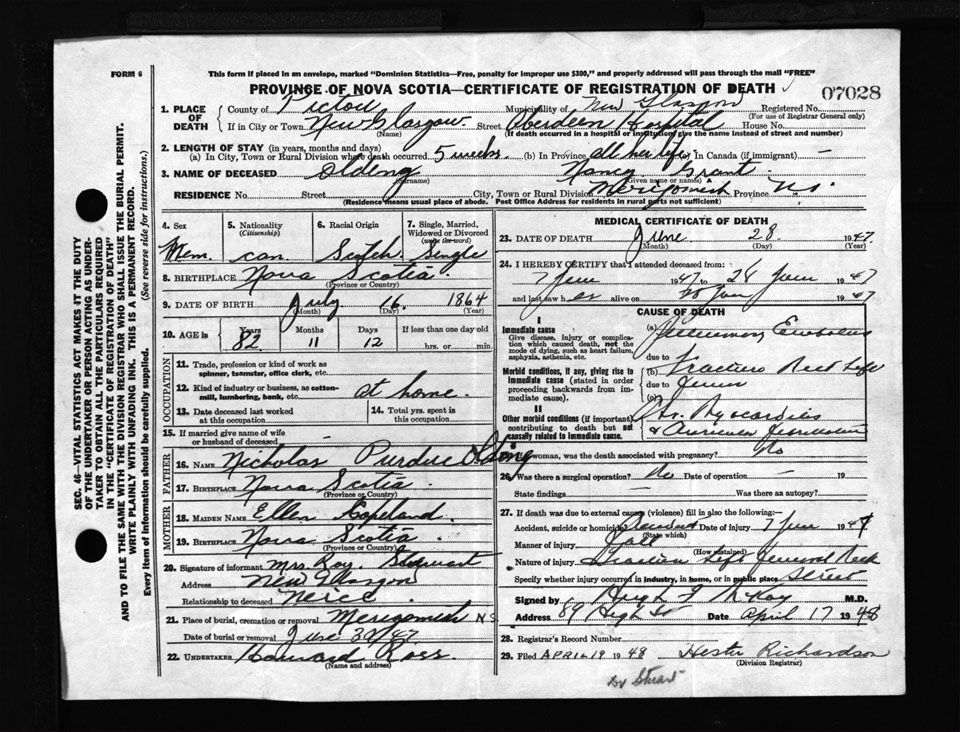 FORM 6
This form if placed in an envelope, marked "Dominion Statistics—Free, penalty for improper use $300," and properly addressed will pass through the mail "FREE"
PROVINCE OF NOVA SCOTIA—CERTIFICATE OF REGISTRATION OF DEATH
07028
1. PLACE OF DEATH
County of Pictou Municipality of New Glasgow Registered No.
(For use of Registrar General only)
If in City or Town New Glasgow Street Aberdeen Hospital House No.
(Name) (If death occurred in a hospital or institution give the name instead of street and number)
2. LENGTH OF STAY (in years, months and days)
(a) In City, Town or Rural Division where death occurred 5 weeks (b) In Province all her life In Canada (if immigrant) —
3. NAME OF DECEASED Olding Nancy Grant
(Surname) (Given name or names)
RESIDENCE No. Street City, Town or Rural Division Merigomish Province N.S.
(Residence means usual place of abode. Post Office Address for residents in rural parts not sufficient)
4. Sex
5. Nationality (Citizenship)
6. Racial Origin
7. Single, Married, Widowed or Divorced (write the word)
Fem. Can. Scotch Single
8. BIRTHPLACE Nova Scotia
(Province or Country)
9. DATE OF BIRTH July 16 1864
(Month) (Day) (Year)
10. AGE is Years Months Days If less than one day old
82 11 12 hrs. or min.
OCCUPATION
11. Trade, profession or kind of work as spinner, teamster, office clerk, etc.
12. Kind of industry or business, as cotton-mill, lumbering, bank, etc. at home.
13. Date deceased last worked at this occupation
14. Total yrs. spent in this occupation
15. If married give name of wife or husband of deceased
FATHER
16. NAME Nicholas Purdue Olding
17. BIRTHPLACE Nova Scotia
(Province or Country)
MOTHER
18. MAIDEN NAME Ellen Copeland
19. BIRTHPLACE Nova Scotia
(Province or Country)
20. Signature of informant Mrs. Roy Stewart
Address New Glasgow
Relationship to deceased Niece
21. Place of burial, cremation or removal Merigomish N.S.
Date of burial or removal June 30/47
22. UNDERTAKER Howard Ross
(Name and address)
MEDICAL CERTIFICATE OF DEATH
23. DATE OF DEATH June 28 1947
(Month) (Day) (Year)
24. I HEREBY CERTIFY that I attended deceased from:
7 June 1947 to 28 June 1947
and last saw her alive on 28 June 1947
CAUSE OF DEATH
I
Immediate cause
Give disease, injury or complication which caused death, not the mode of dying, such as heart failure, asphyxia, asthenia, etc.
(a) Pulmonary Embolus
due to
Morbid conditions, if any, giving rise to immediate cause (stated in order proceeding backwards from immediate cause).
(b) Fracture Neck Left
due to Femur
(c)
II
Other morbid conditions (if important) contributing to death but not causally related to immediate cause.
Chr. Myocarditis
& Auricular Fibrillation
25. If a woman, was the death associated with pregnancy? No
26. Was there a surgical operation? No Date of operation — 19
State findings — Was there an autopsy?
27. If death was due to external causes (violence) fill in also the following:—
Accident, suicide or homicide Accident Date of injury 7 June 1947
(State which)
Manner of injury Fall
(How sustained)
Nature of injury Fracture Left Femoral Neck
Specify whether injury occurred in industry, in home, or in public place Street
Signed by Hugh F. McKay M.D.
Address 89 High St Date April 17 1948
28. Registrar's Record Number
29. Filed APRIL 19 1948 Hester Richardson
(Division Registrar)
Dr Stuart
SEC. 46—VITAL STATISTICS ACT MAKES IT THE DUTY
OF THE UNDERTAKER OR PERSON ACTING AS UNDER-
TAKER TO OBTAIN ALL THE PARTICULARS REQUIRED
IN THE "CERTIFICATE OF REGISTRATION OF DEATH"
AND TO FILE THE SAME WITH THE DIVISION REGISTRAR WHO SHALL ISSUE THE BURIAL PERMIT.
WRITE PLAINLY WITH UNFADING INK. THIS IS A PERMANENT RECORD.
Every item of Information should be carefully supplied. (See reverse side for instructions.)